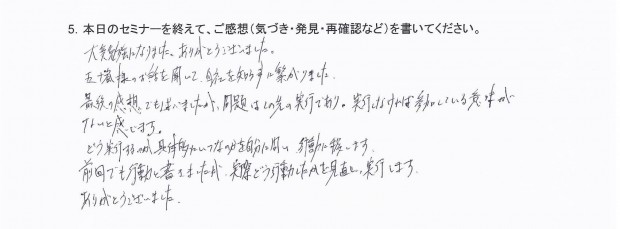 5. 本日のセミナーを終えて、ご感想（気づき・発見・再確認など）を書いてください。
大変勉強になりました、ありがとうございました。
五十嵐様のお話を聞いて、自分を知る事に繋がりました。
最後の感想でも言いましたが、問題はこの先の実行であり。実行しなければ参加している意味が
ないと感じます。
どう実行するのか、具体的にいつなのかを自分に問い 行動に移します。
前回でも行動と書きましたが、実際どう行動したかを見直し、実行します。
ありがとうございました。